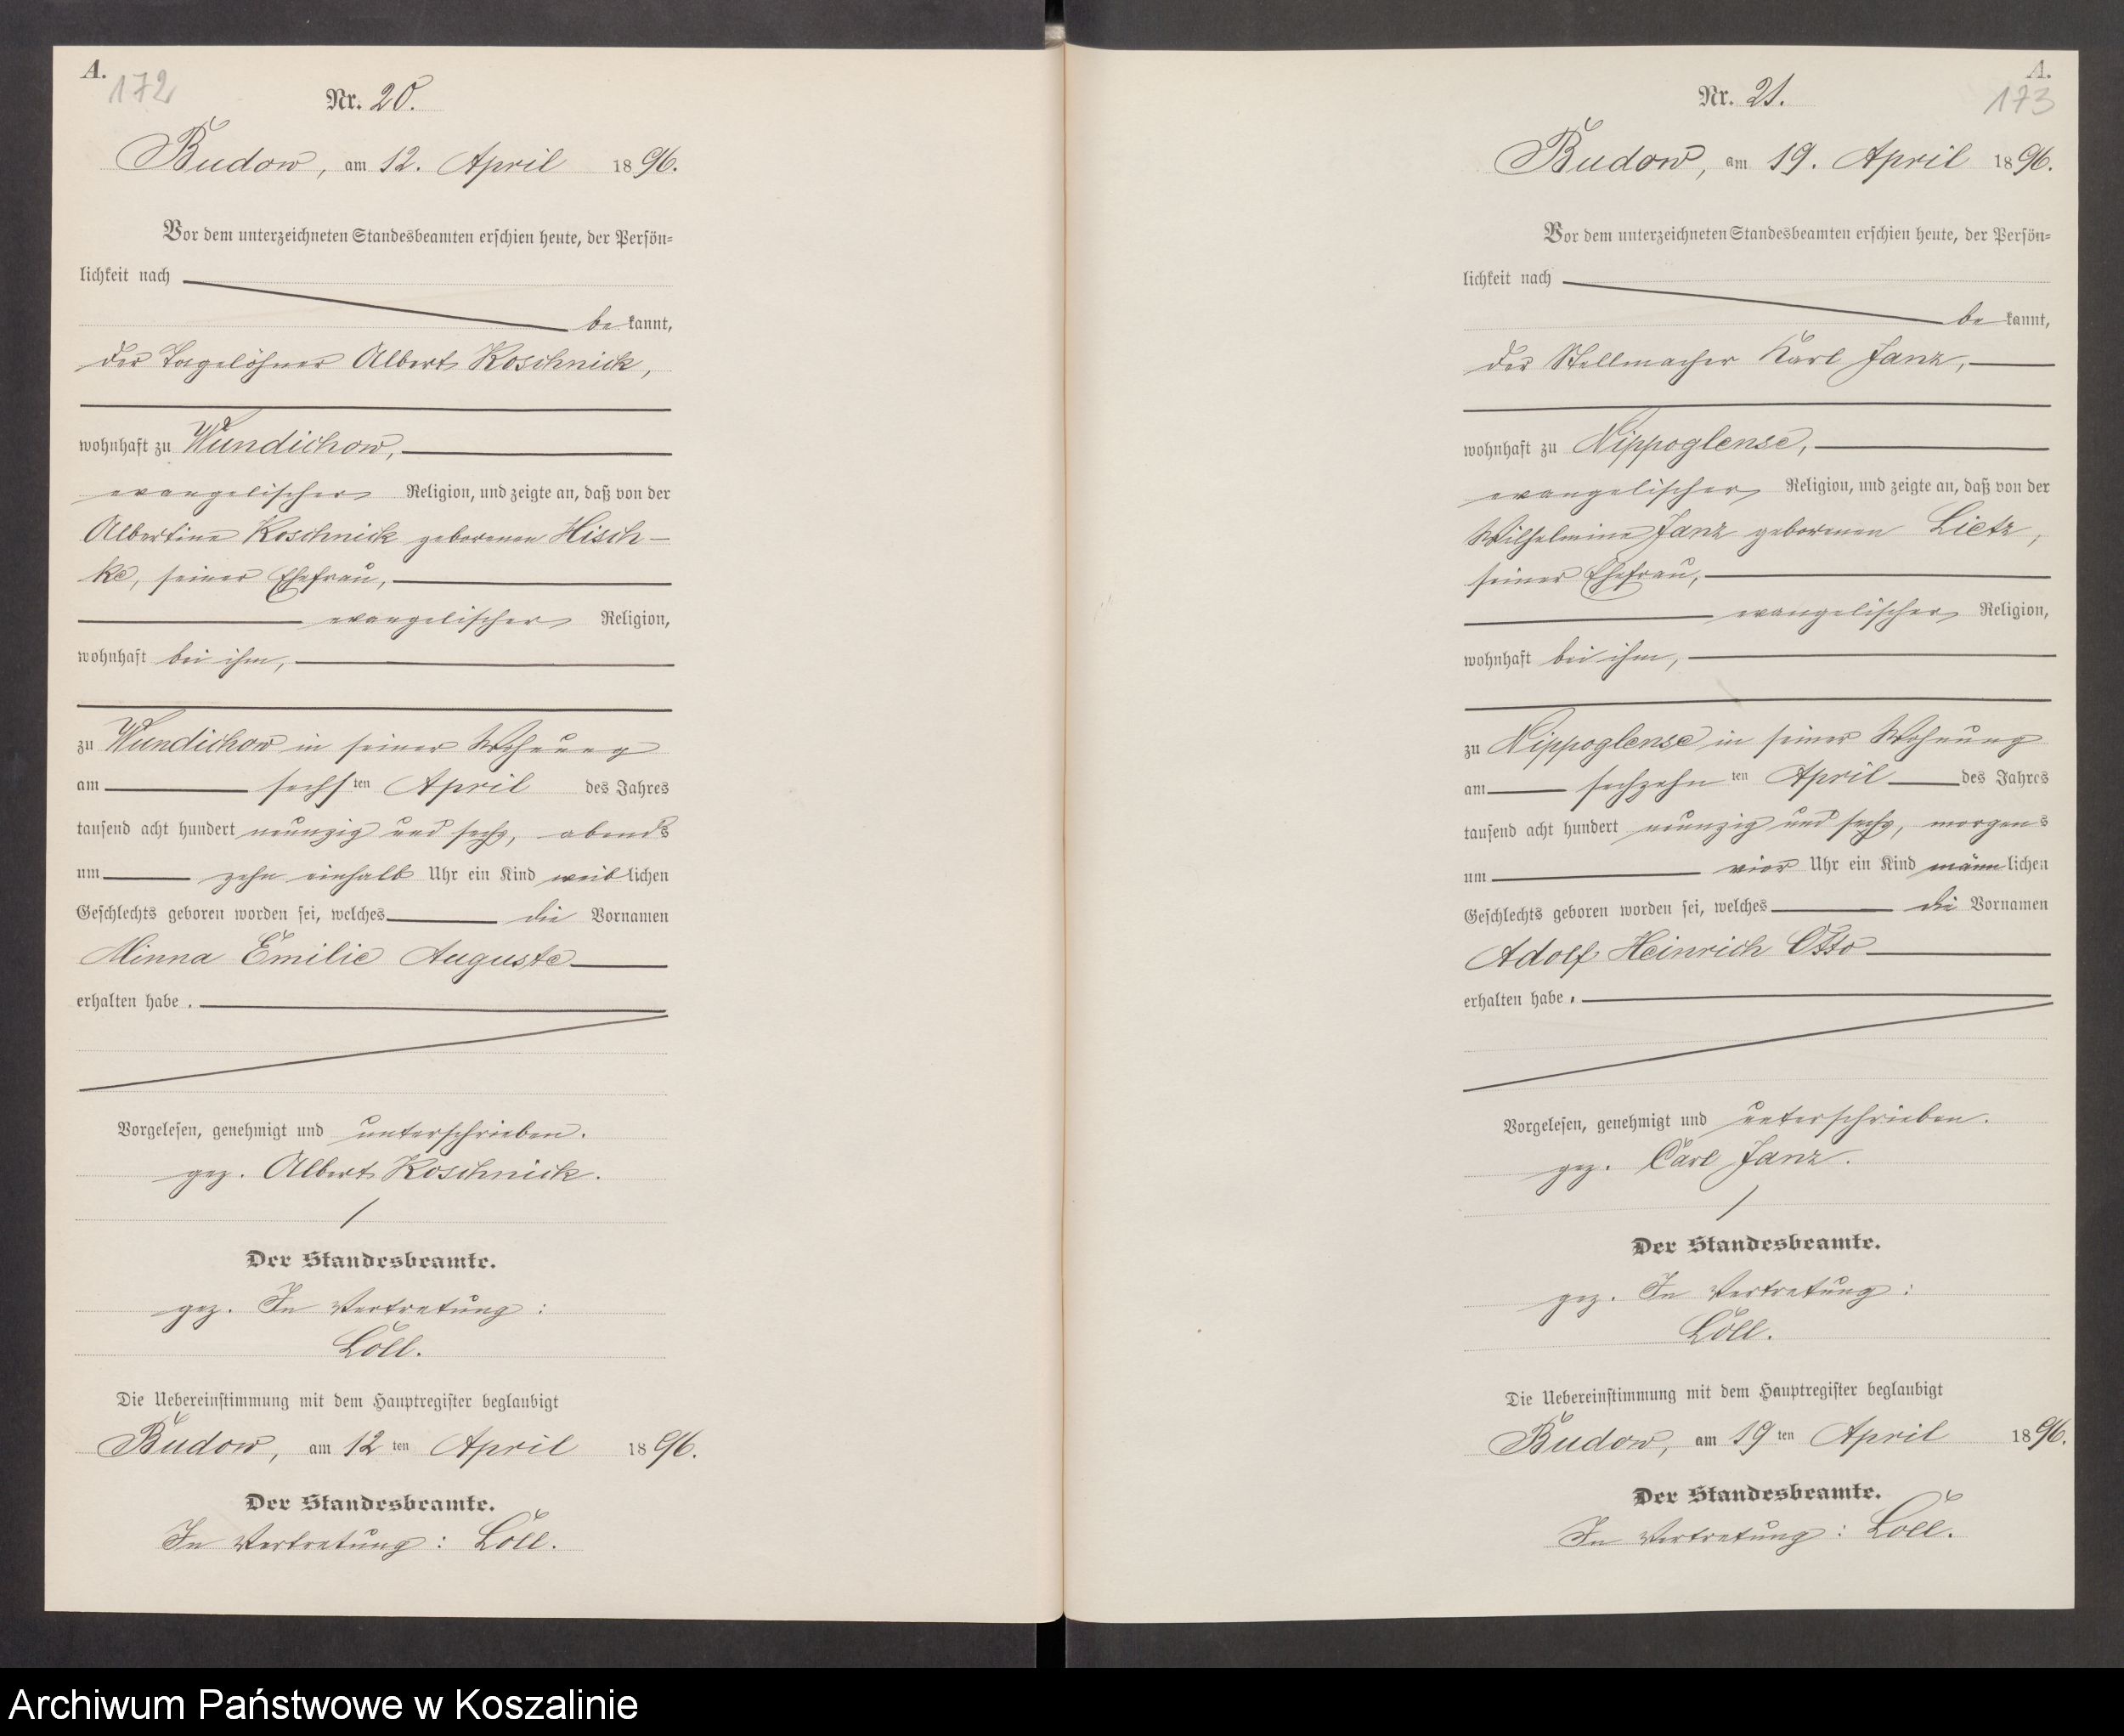 A.
172
Nr. 20.
Budow, am 12. April 1896.
Vor dem unterzeichneten Standesbeamten erschien heute, der Persön=
lichkeit nach
be kannt,
der Tagelöhner Albert Koschnick,
wohnhaft zu Wundichow,
evangelischer Religion, und zeigte an, daß von der
Albertine Koschnick geborenen Hisch-
ke, seiner Ehefrau,
evangelischer Religion,
wohnhaft bei ihm,
zu Wundichow in seiner Wohnung
am sechsten April des Jahres
tausend acht hundert neunzig und sechs, abends
um zehn einhalb Uhr ein Kind weiblichen
Geschlechts geboren worden sei, welches die Vornamen
Minna Emilie Auguste
erhalten habe.
Vorgelesen, genehmigt und unterschrieben.
gez. Albert Koschnick.
Der Standesbeamte.
gez. In Vertretung:
Löll.
Die Uebereinstimmung mit dem Hauptregister beglaubigt
Budow, am 12ten April 1896.
Der Standesbeamte.
In Vertretung: Löll.
A.
173
Nr. 21.
Budow, am 19. April 1896.
Vor dem unterzeichneten Standesbeamten erschien heute, der Persön=
lichkeit nach
be kannt,
der Stellmacher Karl Janz,
wohnhaft zu Nippoglense,
evangelischer Religion, und zeigte an, daß von der
Wilhelmine Janz geborenen Lietz,
seiner Ehefrau,
evangelischer Religion,
wohnhaft bei ihm,
zu Nippoglense in seiner Wohnung
am sechzehnten April des Jahres
tausend acht hundert neunzig und sechs, morgens
um vier Uhr ein Kind männlichen
Geschlechts geboren worden sei, welches die Vornamen
Adolf Heinrich Otto
erhalten habe.
Vorgelesen, genehmigt und unterschrieben.
gez. Carl Janz.
Der Standesbeamte.
gez. In Vertretung:
Löll.
Die Uebereinstimmung mit dem Hauptregister beglaubigt
Budow, am 19ten April 1896.
Der Standesbeamte.
In Vertretung: Löll.
Archiwum Państwowe w Koszalinie